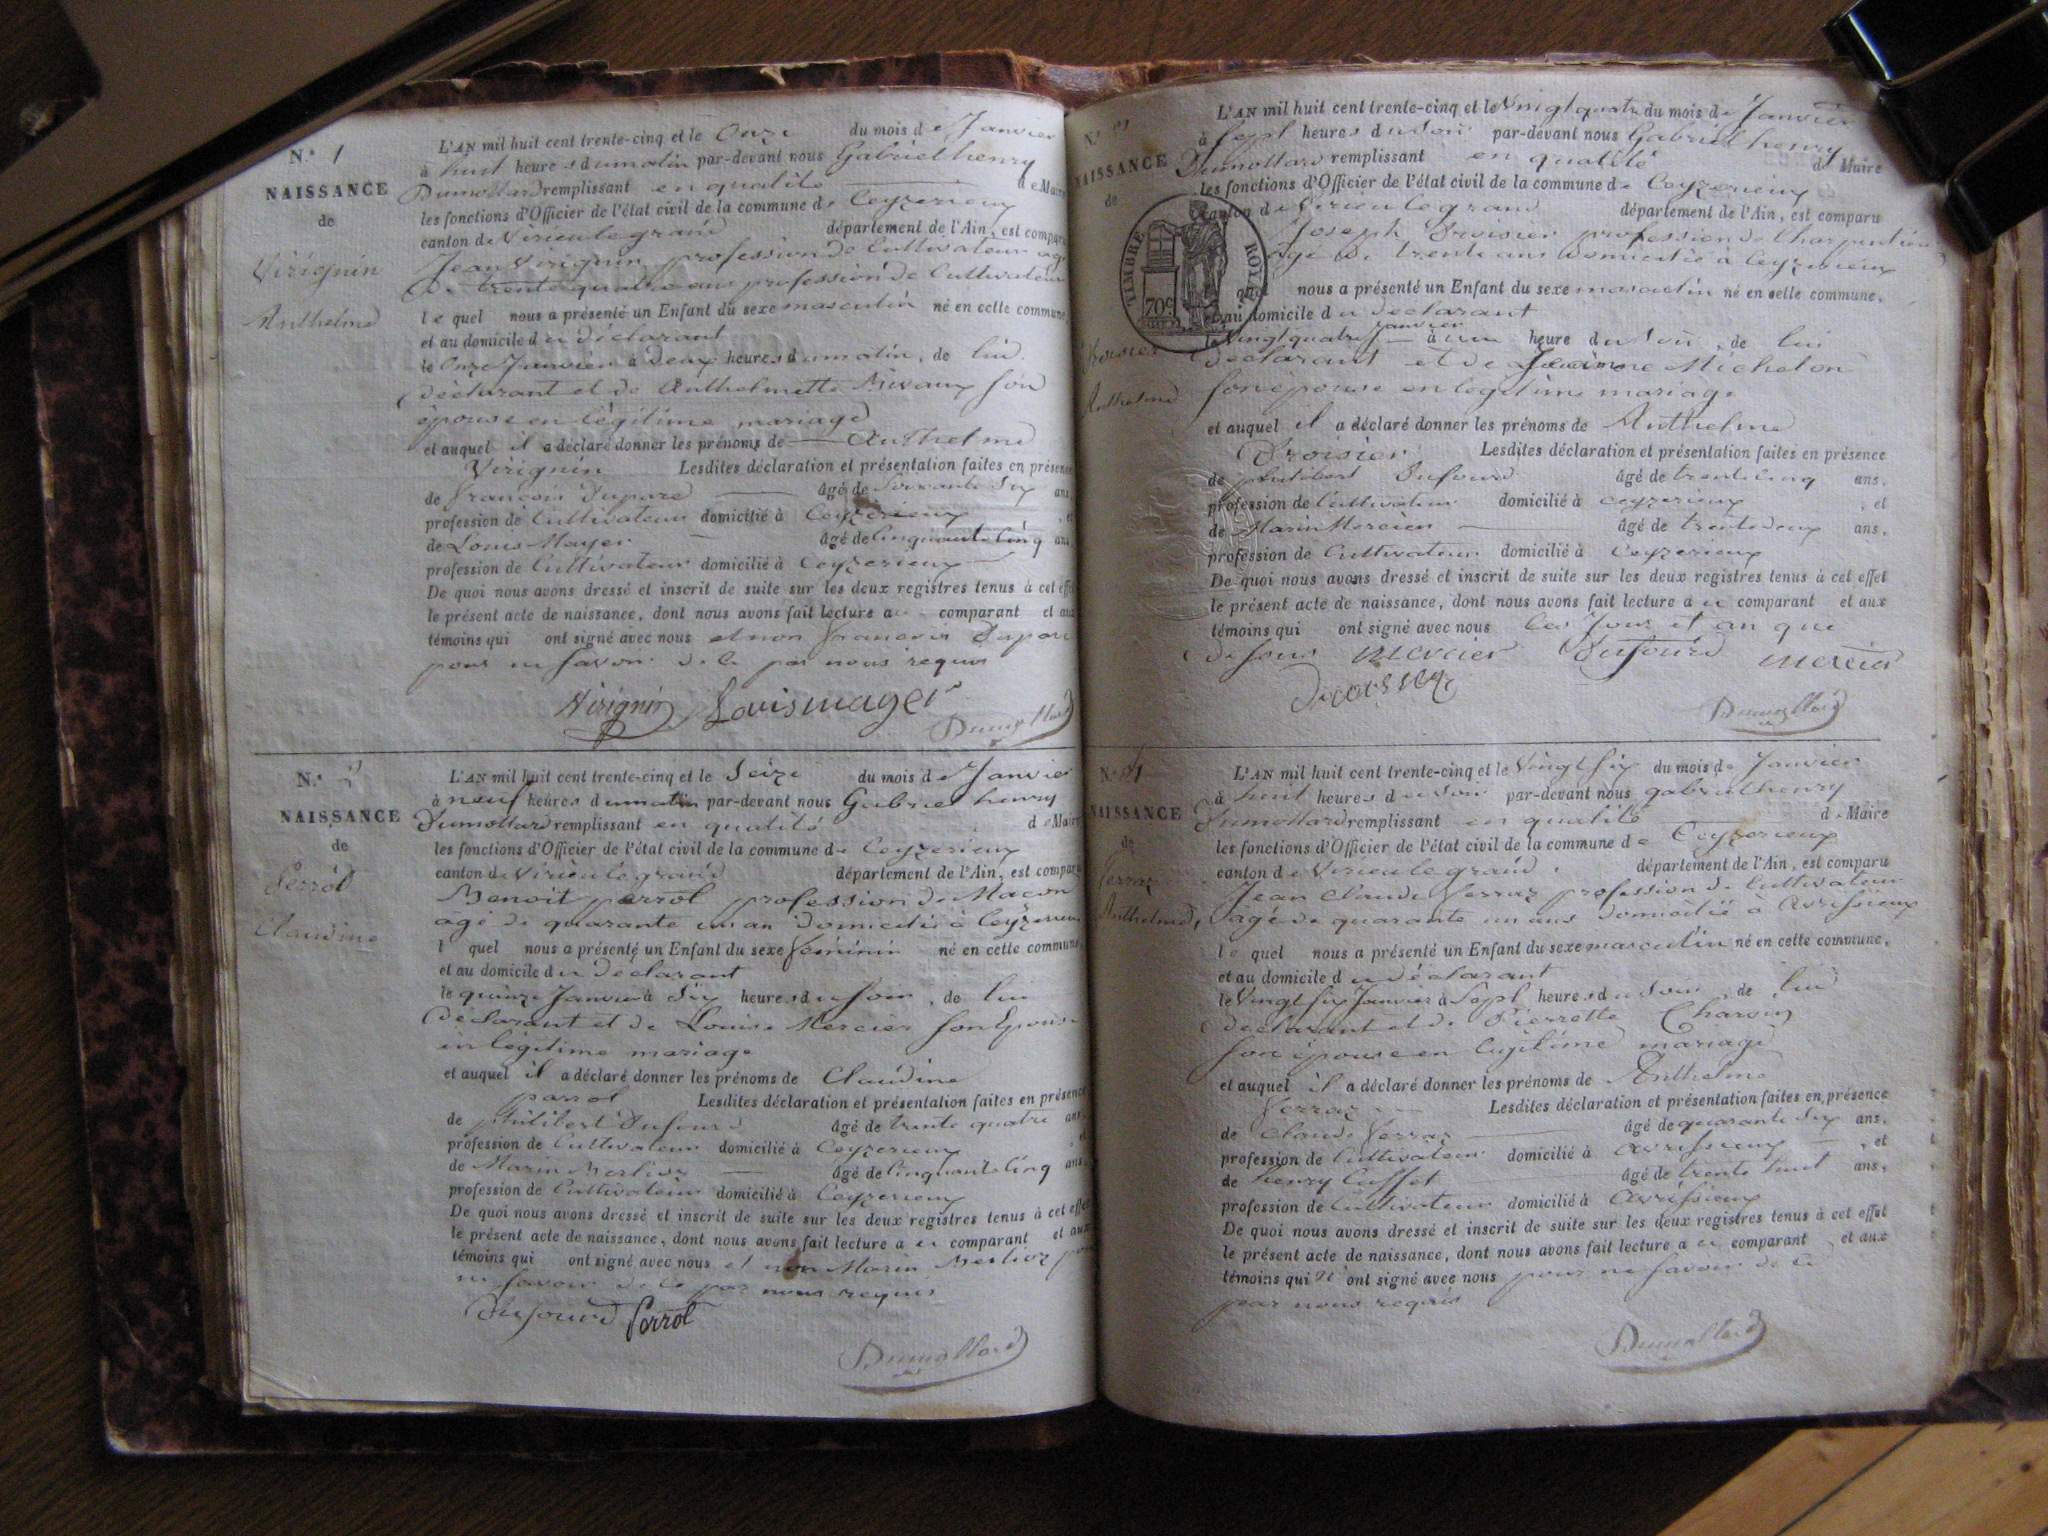 N.° 1
NAISSANCE
de
Virignin
Anthelme
L'AN mil huit cent trente-cinq et le Onze du mois de Janvier
à huit heures du matin par-devant nous Gabriel henry
Dumollard remplissant en qualité de Maire
les fonctions d'Officier de l'état civil de la commune de Ceyzerieux
canton de Virieu le grand département de l'Ain, est comparu
Jean Virignin profession de Cultivateur agé
de trente quatre ans profession de Cultivateur
le quel nous a présenté un Enfant du sexe masculin né en cette commune,
et au domicile du déclarant
le Onze Janvier à Deux heures du matin, de lui
déclarant et de Anthelmette Rivaux son
épouse en légitime mariage
et auquel il a déclaré donner les prénoms de Anthelme
Virignin Lesdites déclaration et présentation faites en présence
de francois Dupard âgé de Soixante Six ans,
profession de Cultivateur domicilié à Ceyzerieux, et
de Louis Mayer âgé de Cinquante Cinq ans,
profession de Cultivateur domicilié à Ceyzerieux
De quoi nous avons dressé et inscrit de suite sur les deux registres tenus à cet effet
le présent acte de naissance, dont nous avons fait lecture au comparant et aux
témoins qui ont signé avec nous et non francois Dupard
pour ne savoir de ce par nous requis
Virignin Louis mayer
Dumollard
N.°
NAISSANCE
de
Perrot
Claudine
L'AN mil huit cent trente-cinq et le Seize du mois de Janvier
à neuf heures du matin par-devant nous Gabriel henry
Dumollard remplissant en qualité de Maire
les fonctions d'Officier de l'état civil de la commune de Ceyzerieux
canton de Virieu le grand département de l'Ain, est comparu
Benoit perrot profession de Macon
agé de quarante un an Domicilié à Ceyzerieux
l quel nous a présenté un Enfant du sexe féminin né en cette commune,
et au domicile du déclarant
le quinze Janvier à Six heures du soir, de lui
déclarant et de Louise Mercier son Epouse
en légitime mariage
et auquel il a déclaré donner les prénoms de Claudine
perrot Lesdites déclaration et présentation faites en présence
de Philibert Dufourd âgé de trente quatre ans,
profession de Cultivateur domicilié à Ceyzerieux, et
de Marin Merlioz âgé de Cinquante Cinq ans,
profession de Cultivateur domicilié à Ceyzerieux
De quoi nous avons dressé et inscrit de suite sur les deux registres tenus à cet effet
le présent acte de naissance, dont nous avons fait lecture au comparant et aux
témoins qui ont signé avec nous et non Marin Merlioz pour
ne savoir de ce par nous requis
Dufourd Perrot
Dumollard
N.°
NAISSANCE
de
Anthelme
TIMBRE ROYAL
70c
L'AN mil huit cent trente-cinq et le Vingt quatre du mois de Janvier
à Sept heures du soir par-devant nous Gabriel henry
Dumollard remplissant en qualité de Maire
les fonctions d'Officier de l'état civil de la commune de Ceyzerieux
canton de Virieu le grand département de l'Ain, est comparu
Joseph Droisier profession de Charpentier
agé de trente ans Domicilié à Ceyzerieux
quel nous a présenté un Enfant du sexe masculin né en cette commune,
et au domicile du déclarant
le Vingt quatre Janvier à une heure du soir, de lui
déclarant et de Jeanne Micheton
son épouse en légitime mariage
et auquel il a déclaré donner les prénoms de Anthelme
Droisier Lesdites déclaration et présentation faites en présence
de philibert Dufourd âgé de trente cinq ans,
profession de Cultivateur domicilié à Ceyzerieux, et
de Marin Mercier âgé de trente deux ans,
profession de Cultivateur domicilié à Ceyzerieux
De quoi nous avons dressé et inscrit de suite sur les deux registres tenus à cet effet
le présent acte de naissance, dont nous avons fait lecture au comparant et aux
témoins qui ont signé avec nous les Jour et an que
dessus mercier Dufourd mercier
Dumollard
N.° 4
NAISSANCE
de
Verraz
Anthelme,
L'AN mil huit cent trente-cinq et le Vingt Six du mois de Janvier
à huit heures du soir par-devant nous gabriel henry
Dumollard remplissant en qualité de Maire
les fonctions d'Officier de l'état civil de la commune de Ceyzerieux
canton de Virieu le grand département de l'Ain, est comparu
Jean Claude Verraz profession de Cultivateur
agé de quarante un ans domicilié à Avrissieux
le quel nous a présenté un Enfant du sexe masculin né en cette commune,
et au domicile du déclarant
le Vingt Six Janvier à Sept heures du soir, de lui
déclarant et de Pierrette Charvin
son épouse en légitime mariage
et auquel il a déclaré donner les prénoms de Anthelme
Verraz Lesdites déclaration et présentation faites en présence
de Claude Verraz âgé de quarante Six ans,
profession de Cultivateur domicilié à avrissieux, et
de henry Cusset âgé de trente huit ans,
profession de Cultivateur domicilié à avrissieux
De quoi nous avons dressé et inscrit de suite sur les deux registres tenus à cet effet
le présent acte de naissance, dont nous avons fait lecture au comparant et aux
témoins qui n' ont signé avec nous pour ne savoir de ce
par nous requis
Dumollard